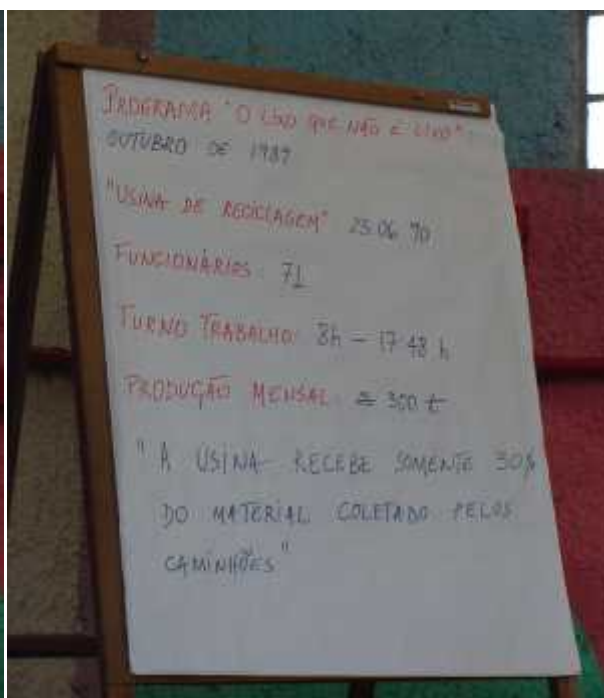 PROGRAMA "O LIXO QUE NÃO É LIXO"
OUTUBRO DE 1989
"USINA DE RECICLAGEM" 25.06.90
FUNCIONÁRIOS: 71
TURNO TRABALHO: 8h – 17:48 h
PRODUÇÃO MENSAL: ≅ 300 t
"A USINA RECEBE SOMENTE 30%
DO MATERIAL COLETADO PELOS
CAMINHÕES"